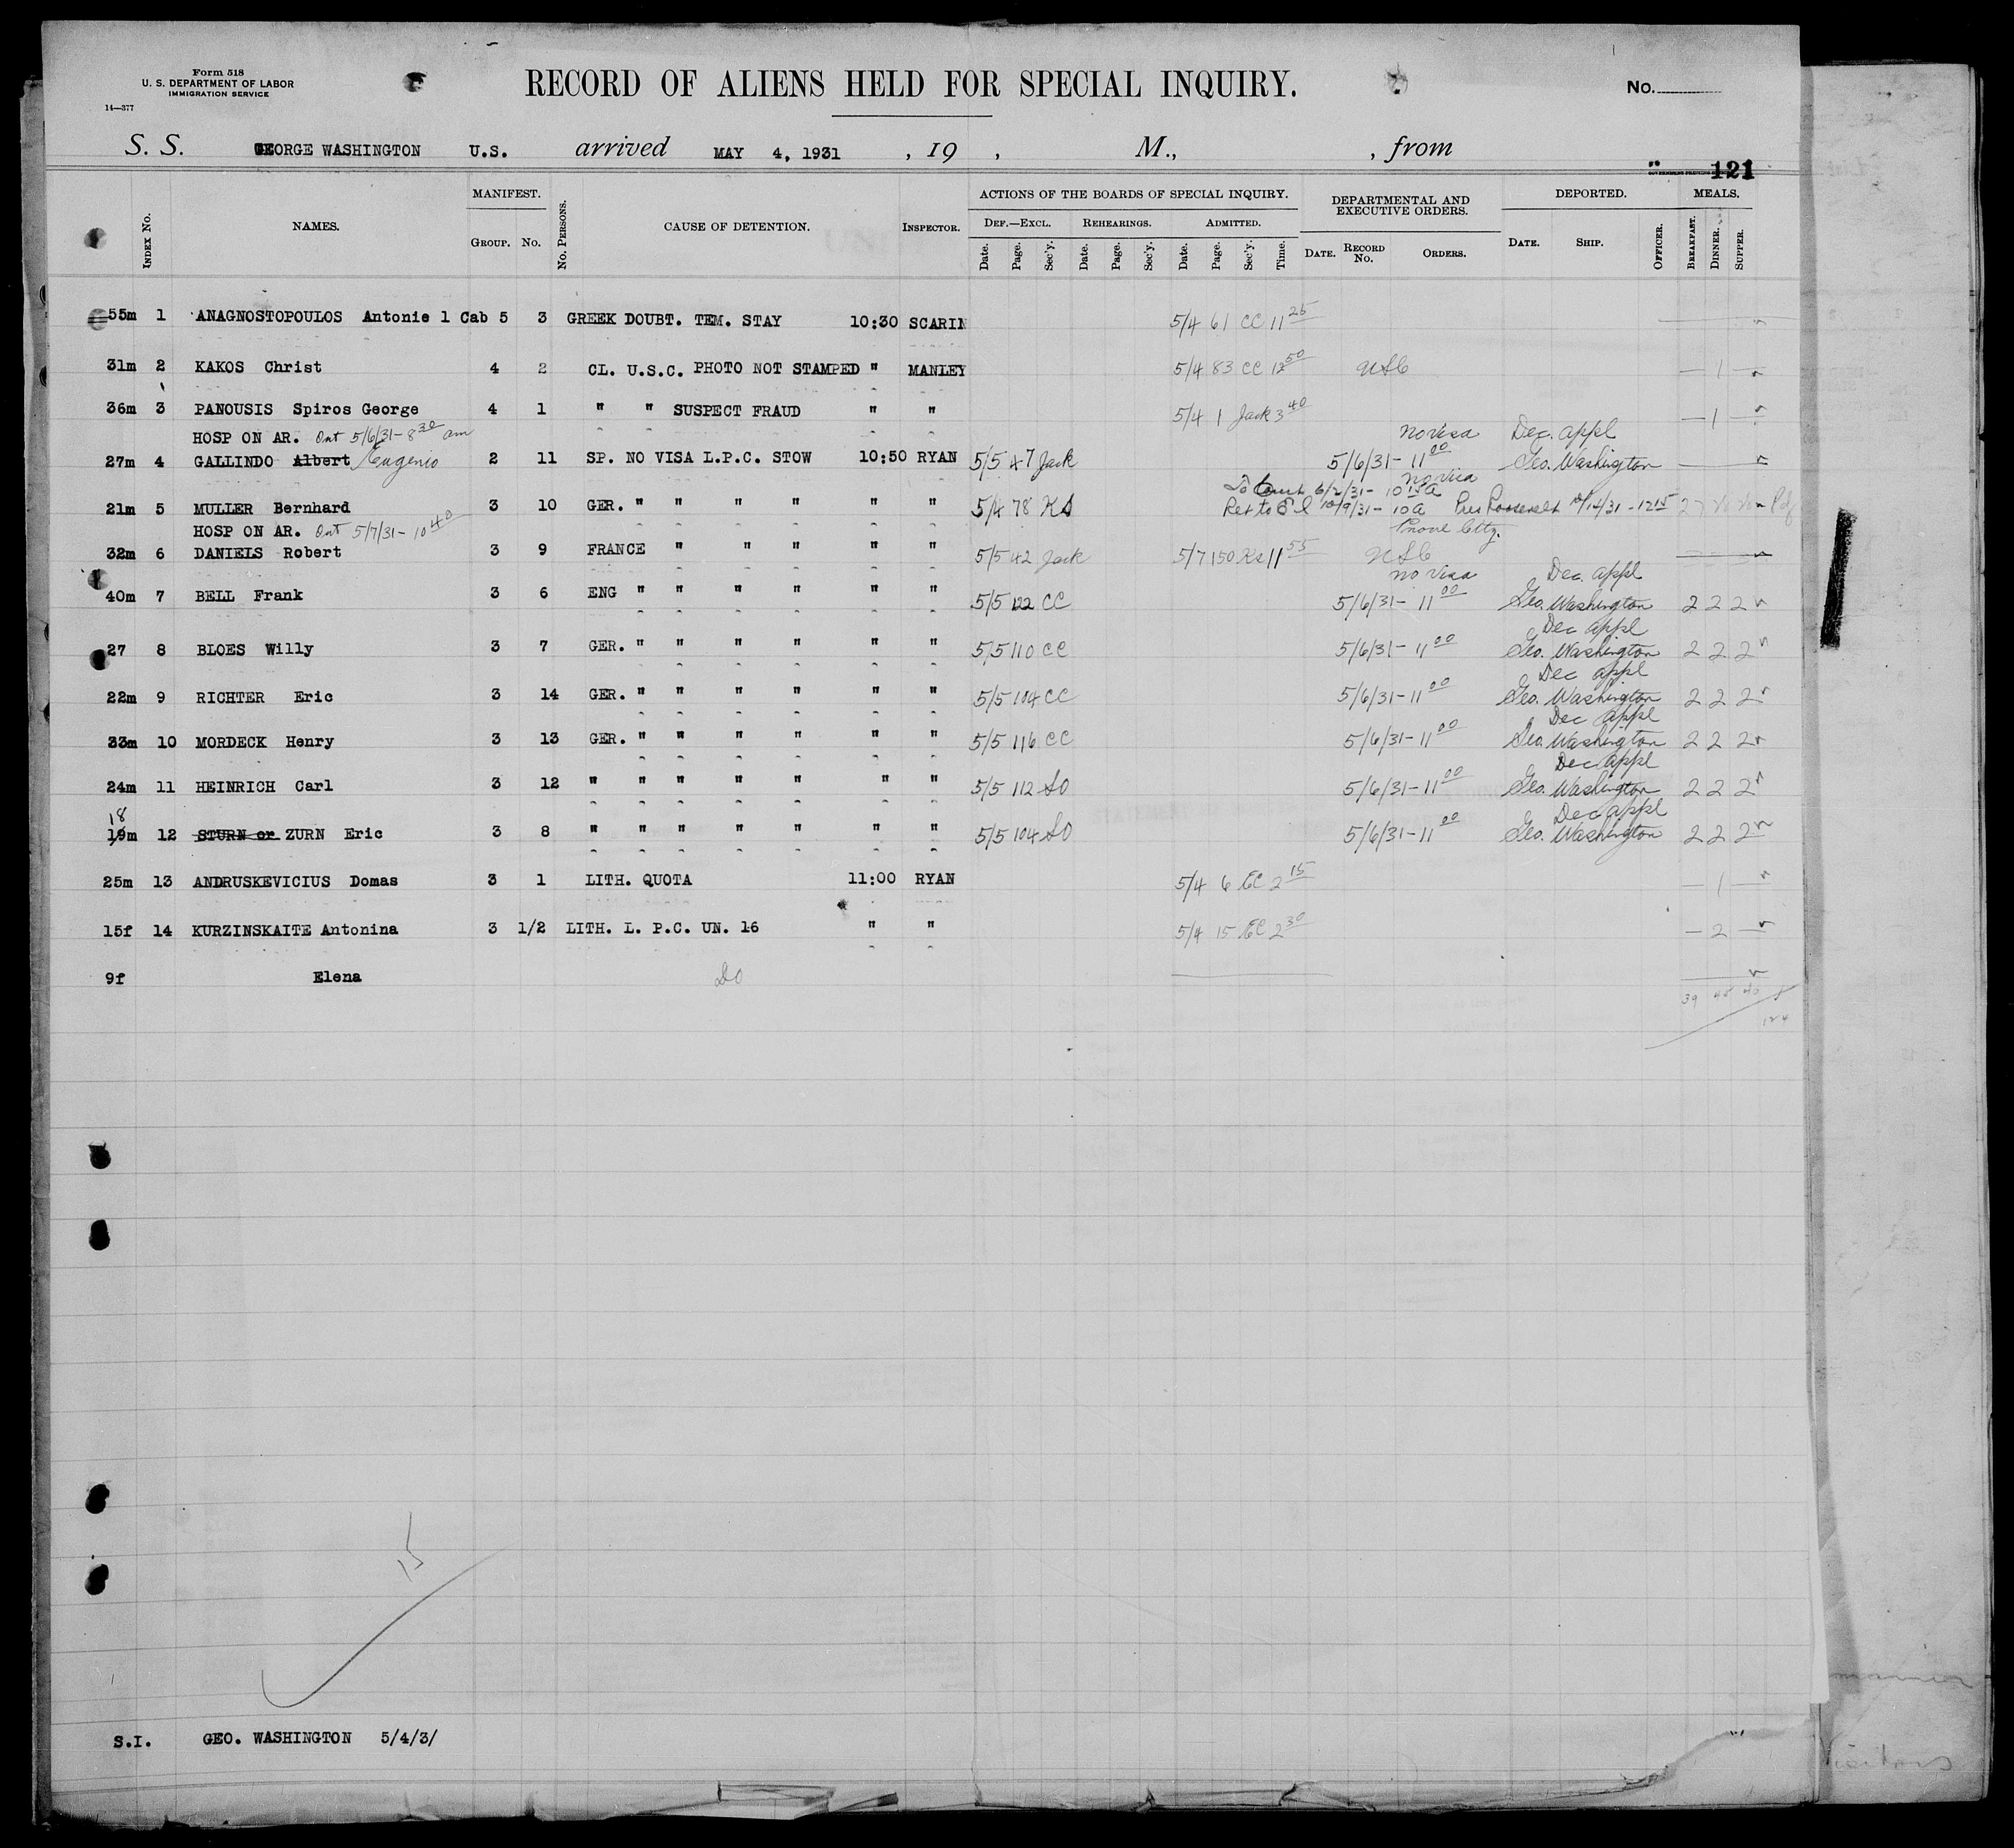 Form 518
U. S. DEPARTMENT OF LABOR
IMMIGRATION SERVICE
14—377
RECORD OF ALIENS HELD FOR SPECIAL INQUIRY.
No.
S. S. GEORGE WASHINGTON U.S. arrived MAY 4, 1931 , 19 , M., , from
121
INDEX No. NAMES. MANIFEST. GROUP. No. No. PERSONS. CAUSE OF DETENTION. INSPECTOR. ACTIONS OF THE BOARDS OF SPECIAL INQUIRY. DEPARTMENTAL AND EXECUTIVE ORDERS. DEPORTED. MEALS.
DEF.—EXCL. REHEARINGS. ADMITTED.
Date. Page. Sec'y. Date. Page. Sec'y. Date. Page. Sec'y. Time. DATE. RECORD No. ORDERS. DATE. SHIP. OFFICER. BREAKFAST. DINNER. SUPPER.
55m 1 ANAGNOSTOPOULOS Antonie 1 Cab 5 3 GREEK DOUBT. TEM. STAY 10:30 SCARIN 5/4 61 CC 11 25
31m 2 KAKOS Christ 4 2 CL. U.S.C. PHOTO NOT STAMPED " MANLEY 5/4 83 CC 12 50 USC — 1 —
36m 3 PANOUSIS Spiros George 4 1 " " SUSPECT FRAUD " " 5/4 1 Jack 3 40 — 1 —
HOSP ON AR. Out 5/6/31 - 8 30 am no visa Dec. appl
27m 4 GALLINDO Albert Eugenio 2 11 SP. NO VISA L.P.C. STOW 10:50 RYAN 5/5 47 Jack 5/6/31 - 11 00 Geo. Washington
To Court 6/2/31 - 10 15 A no visa
21m 5 MULLER Bernhard 3 10 GER. " " " " " " 5/4 78 KS Ret to E I 10/9/31 - 10 A Pres Roosevelt 10/14/31 - 12 15
HOSP ON AR. Out 5/7/31 - 10 40 Prove Ctz.
32m 6 DANIELS Robert 3 9 FRANCE " " " " " 5/5 42 Jack 5/7 150 Ks 11 55 USC
no visa Dec. appl
40m 7 BELL Frank 3 6 ENG " " " " " " 5/5 122 CC 5/6/31 - 11 00 Geo. Washington 2 2 2
Dec appl
27 8 BLOES Willy 3 7 GER. " " " " " " 5/5 110 CC 5/6/31 - 11 00 Geo. Washington 2 2 2
Dec appl
22m 9 RICHTER Eric 3 14 GER. " " " " " " 5/5 104 CC 5/6/31 - 11 00 Geo. Washington 2 2 2
Dec appl
33m 10 MORDECK Henry 3 13 GER. " " " " " " 5/5 116 CC 5/6/31 - 11 00 Geo. Washington 2 2 2
Dec appl
24m 11 HEINRICH Carl 3 12 " " " " " " " 5/5 112 SO 5/6/31 - 11 00 Geo. Washington 2 2 2
18 Dec appl
19m 12 STURN or ZURN Eric 3 8 " " " " " " " 5/5 104 SO 5/6/31 - 11 00 Geo. Washington 2 2 2
25m 13 ANDRUSKEVICIUS Domas 3 1 LITH. QUOTA 11:00 RYAN 5/4 6 EC 2 15 — 1 —
15f 14 KURZINSKAITE Antonina 3 1/2 LITH. L. P.C. UN. 16 " " 5/4 15 EC 2 30 — 2 —
9f Elena Do
39 45 40
124
15
S.I. GEO. WASHINGTON 5/4/3/